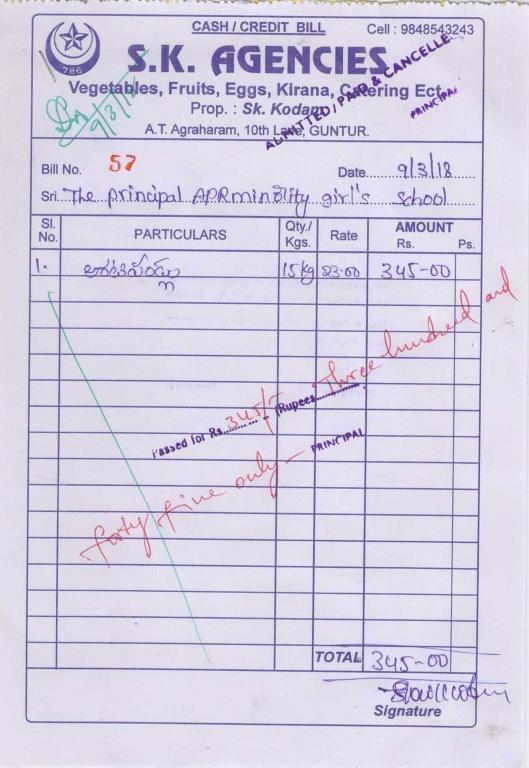 CASH / CREDIT BILL
Cell : 9848543243
786
S.K. AGENCIES
Vegetables, Fruits, Eggs, Kirana, Catering Ect.
Prop. : Sk. Kodam
A.T. Agraharam, 10th Lane, GUNTUR.
ADMITTED / PAID & CANCELLE
PRINCIPAL
9/3/18
Bill No. 57
Date 9/3/18
Sri. The principal APR minority girl's school
Sl. No. PARTICULARS Qty./ Kgs. Rate AMOUNT Rs. Ps.
1. 15 kg 23.00 345-00
Passed for Rs. 345/- (Rupees Three hundred and
forty five only —
PRINCIPAL
TOTAL 345-00
Signature